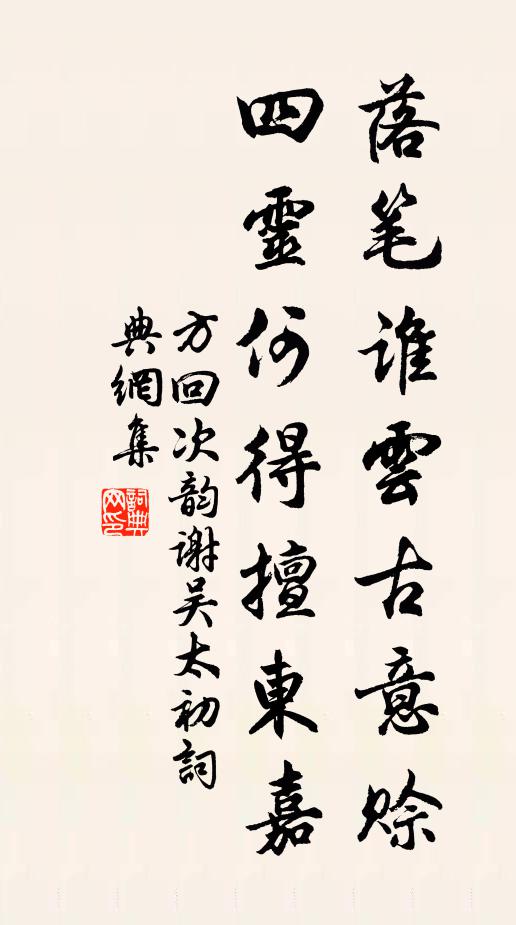 落笔谁雲古意赊
四靈何得擅東嘉
方回次韵谢吴太初詞
典網集
詞典网印